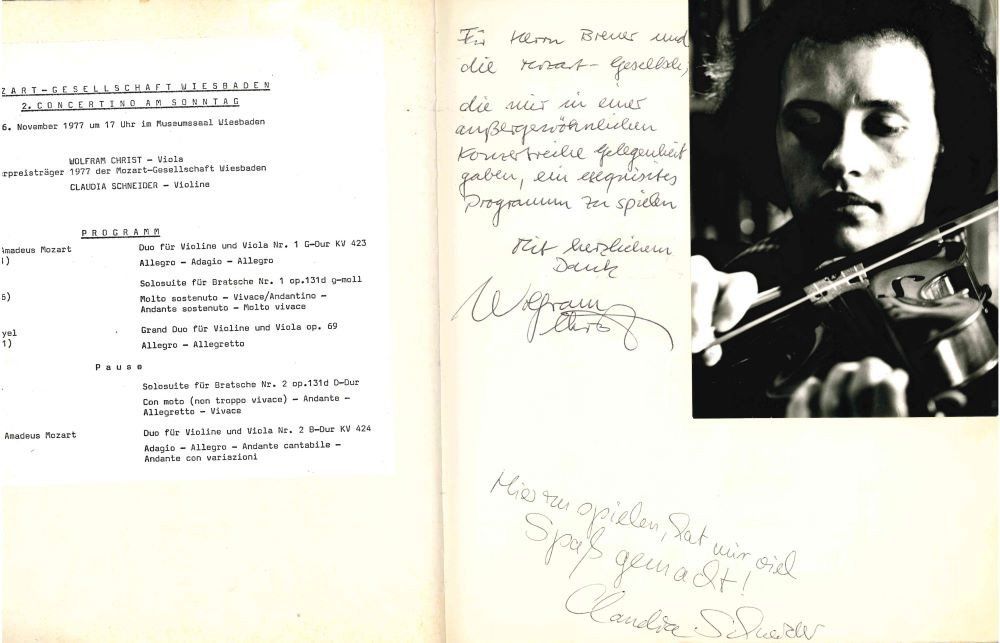 ZART-GESELLSCHAFT WIESBADEN
2. CONCERTINO AM SONNTAG
6. November 1977 um 17 Uhr im Museumssaal Wiesbaden
WOLFRAM CHRIST - Viola
rpreisträger 1977 der Mozart-Gesellschaft Wiesbaden
CLAUDIA SCHNEIDER - Violine
PROGRAMM
Amadeus Mozart
Duo für Violine und Viola Nr. 1 G-Dur KV 423
Allegro - Adagio - Allegro
Solosuite für Bratsche Nr. 1 op.131d g-moll
6)
Molto sostenuto - Vivace/Andantino -
Andante sostenuto - Molto vivace
yel
Grand Duo für Violine und Viola op. 69
1)
Allegro - Allegretto
Pause
Solosuite für Bratsche Nr. 2 op.131d D-Dur
Con moto (non troppo vivace) - Andante -
Allegretto - Vivace
Amadeus Mozart
Duo für Violine und Viola Nr. 2 B-Dur KV 424
Adagio - Allegro - Andante cantabile -
Andante con variazioni
Für Herrn Breuer und
die Mozart-Gesellsch,
die mir in einer
außergewöhnlichen
Konzertreihe Gelegenheit
gaben, ein exquisites
Programm zu spielen
Mit herzlichem
Dank
Wolfram
Christ
Hier zu spielen, hat mir viel
Spaß gemacht!
Claudia Schneider